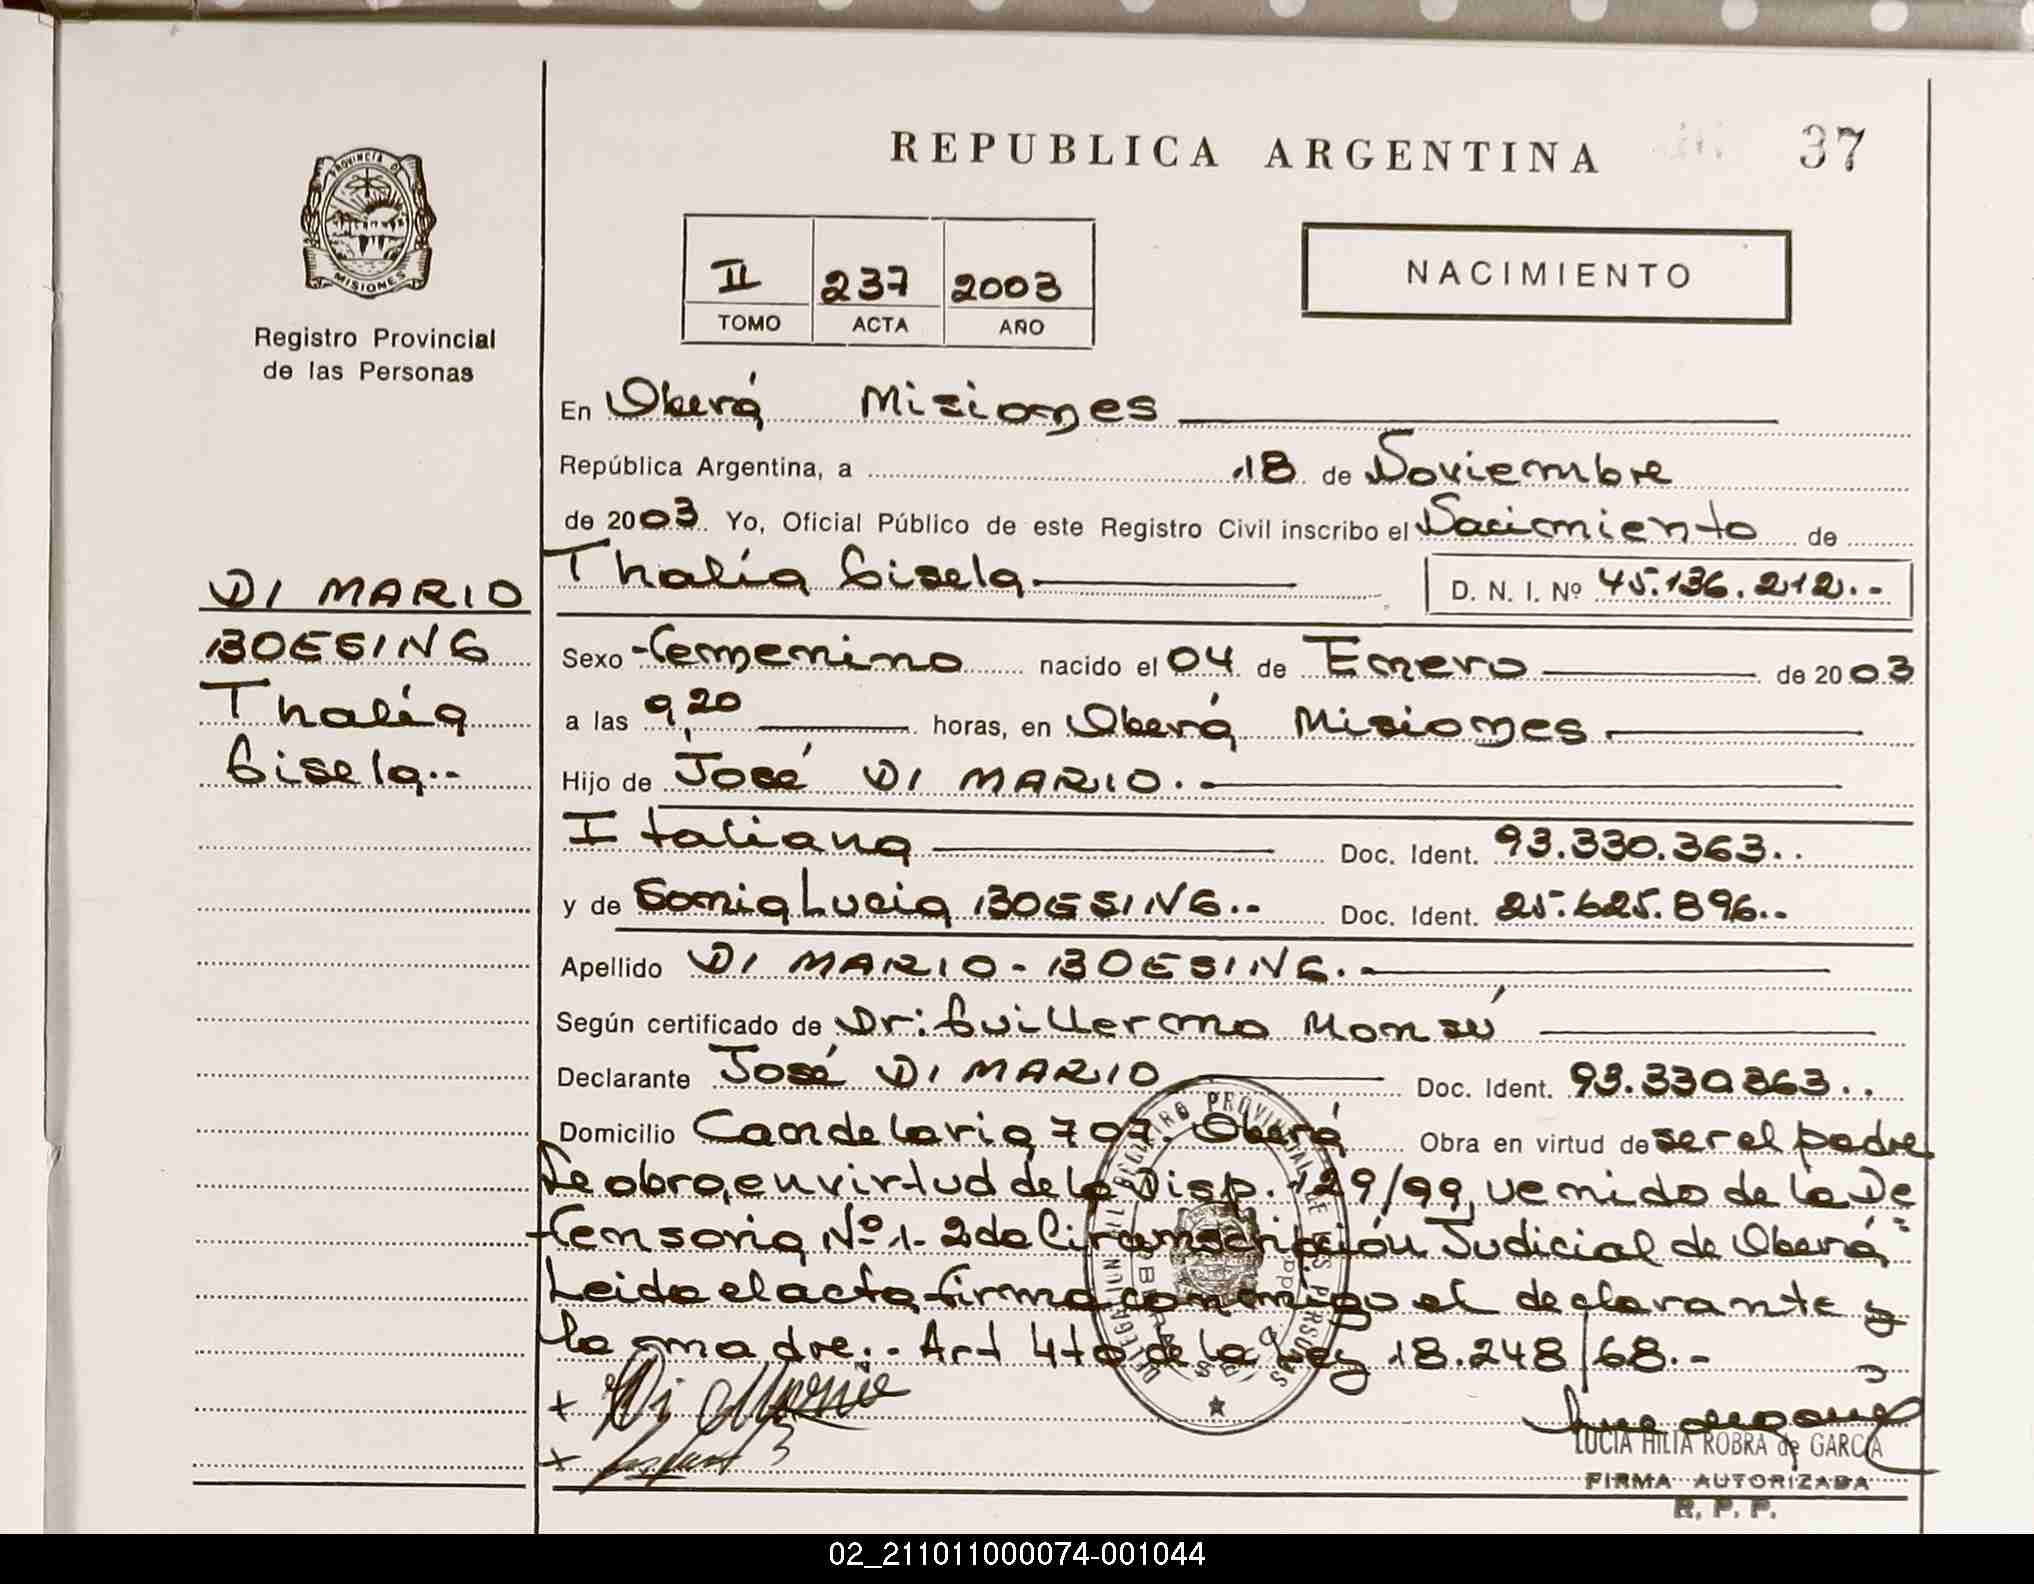 REPUBLICA ARGENTINA
37
PROVINCIA DE
MISIONES
Registro Provincial
de las Personas
II 237 2003
TOMO ACTA AÑO
NACIMIENTO
En Oberá Misiones
República Argentina, a 18 de Noviembre
de 2003 Yo, Oficial Público de este Registro Civil inscribo el Nacimiento de
Thalía Gisela D. N. I. Nº 45.136.212.-
DI MARIO
BOESING
Thalía
Gisela.-
Sexo femenino nacido el 04 de Enero de 2003
a las 9,20 horas, en Oberá Misiones
Hijo de José DI MARIO.
Italiana Doc. Ident. 93.330.363..
y de Sonia Lucia BOESING.. Doc. Ident. 25.625.896..
Apellido DI MARIO - BOESING.-
Según certificado de Dr: Guillermo Monsú
Declarante José DI MARIO Doc. Ident. 93.330363..
Domicilio Candelaria 707. Oberá Obra en virtud de ser el padre
Se obra, en virtud de la Disp. 129/99, venido de la De
fensoria Nº 1- 2da Circunscripción Judicial de Oberá
Leida el acta firma conmigo el declarante y
la madre.. - Art 4to de la Ley 18.248/68.-
+ Di Mario
+
LUCIA HILTA ROBRA de GARCIA
FIRMA AUTORIZADA
R. P. P.
02_211011000074-001044